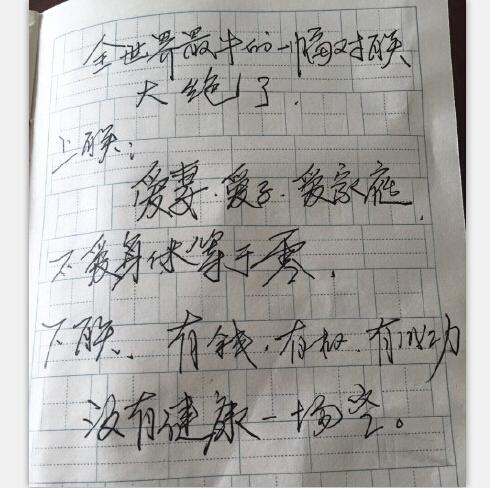 全世界最牛的一幅对联
大绝了.
上联:
爱妻.爱子.爱家庭,
不爱身体等于零.
下联、有钱.有权.有成功
没有健康一场空。